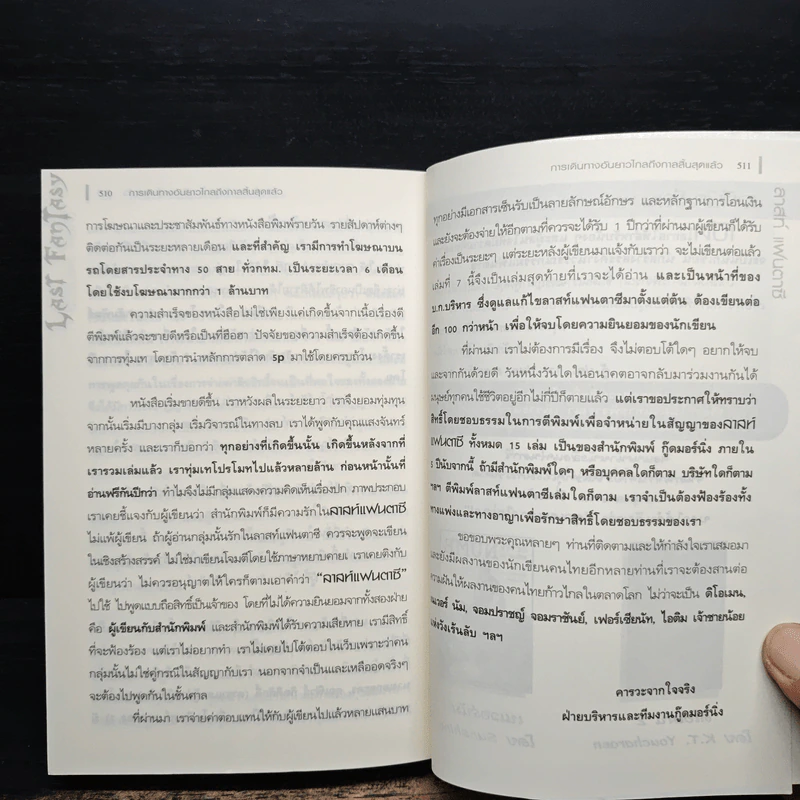 LAST FANTASY
510 การเดินทางอันยาวไกลถึงกาลสิ้นสุดแล้ว
การโฆษณาและประชาสัมพันธ์ทางหนังสือพิมพ์รายวัน รายสัปดาห์ต่างๆ
ติดต่อกันเป็นระยะหลายเดือน และที่สำคัญ เรามีการทำโฆษณาบน
รถโดยสารประจำทาง 50 สาย ทั่วกทม. เป็นระยะเวลา 6 เดือน
โดยใช้งบโฆษณามากกว่า 1 ล้านบาท
ความสำเร็จของหนังสือไม่ใช่เพียงแค่เกิดขึ้นจากเนื้อเรื่องดี
ตีพิมพ์แล้วจะขายดีหรือเป็นที่ฮือฮา ปัจจัยของความสำเร็จต้องเกิดขึ้น
จากการทุ่มเท โดยการนำหลักการตลาด 5p มาใช้โดยครบถ้วน
หนังสือเริ่มขายดีขึ้น เราหวังผลในระยะยาว เราจึงยอมทุ่มทุน
จากนั้นเริ่มมีบางกลุ่ม เริ่มวิจารณ์ในทางลบ เราได้พูดกับคุณแสงจันทร์
หลายครั้ง และเราก็บอกว่า ทุกอย่างที่เกิดขึ้นนั้น เกิดขึ้นหลังจากที่
เรารวมเล่มแล้ว เราทุ่มเทโปรโมทไปแล้วหลายล้าน ก่อนหน้านั้นที่
อ่านฟรีกันปีกว่า ทำไมจึงไม่มีกลุ่มแสดงความคิดเห็นเรื่องปก ภาพประกอบ
เราเคยชี้แจงกับผู้เขียนว่า สำนักพิมพ์ก็มีความรักในลาสท์แฟนตาซี
ไม่แพ้ผู้เขียน ถ้าผู้อ่านกลุ่มนั้นรักในลาสท์แฟนตาซี ควรจะพูดจะเขียน
ในเชิงสร้างสรรค์ ไม่ใช่มาเขียนโจมตีโดยใช้ภาษาหยาบคาย เราเคยติงกับ
ผู้เขียนว่า ไม่ควรอนุญาตให้ใครก็ตามเอาคำว่า "ลาสท์แฟนตาซี"
ไปใช้ ไปพูดแบบถือสิทธิ์เป็นเจ้าของ โดยที่ไม่ได้ความยินยอมจากทั้งสองฝ่าย
คือ ผู้เขียนกับสำนักพิมพ์ และสำนักพิมพ์ได้รับความเสียหาย เรามีสิทธิ์
ที่จะฟ้องร้อง แต่เราไม่อยากทำ เราไม่เคยไปโต้ตอบในเว็บเพราะว่าคน
กลุ่มนั้นไม่ใช่คู่กรณีในสัญญากับเรา นอกจากจำเป็นและเหลืออดจริงๆ
จะต้องไปพูดกันในชั้นศาล
ที่ผ่านมา เราจ่ายค่าตอบแทนให้กับผู้เขียนไปแล้วหลายแสนบาท
การเดินทางอันยาวไกลถึงกาลสิ้นสุดแล้ว 511
ลาสท์ แฟนตาซี
ทุกอย่างมีเอกสารเซ็นรับเป็นลายลักษณ์อักษร และหลักฐานการโอนเงิน
และยังจะต้องจ่ายให้อีกตามที่ควรจะได้รับ 1 ปีกว่าที่ผ่านมาผู้เขียนก็ได้รับ
ค่าเรื่องเป็นระยะๆ แต่ระยะหลังผู้เขียนมาแจ้งกับเราว่า จะไม่เขียนต่อแล้ว
เล่มที่ 7 นี้จึงเป็นเล่มสุดท้ายที่เราจะได้อ่าน และเป็นหน้าที่ของ
บ.ก.บริหาร ซึ่งดูแลแก้ไขลาสท์แฟนตาซีมาตั้งแต่ต้น ต้องเขียนต่อ
อีก 100 กว่าหน้า เพื่อให้จบโดยความยินยอมของนักเขียน
ที่ผ่านมา เราไม่ต้องการมีเรื่อง จึงไม่ตอบโต้ใดๆ อยากให้จบ
และจากกันด้วยดี วันหนึ่งวันใดในอนาคตอาจกลับมาร่วมงานกันได้
มนุษย์ทุกคนใช้ชีวิตอยู่อีกไม่กี่ปีก็ตายแล้ว แต่เราขอประกาศให้ทราบว่า
สิทธิ์โดยชอบธรรมในการตีพิมพ์เพื่อจำหน่ายในสัญญาของลาสท์
แฟนตาซี ทั้งหมด 15 เล่ม เป็นของสำนักพิมพ์ กู๊ดมอร์นิ่ง ภายใน
5 ปีนับจากนี้ ถ้ามีสำนักพิมพ์ใดๆ หรือบุคคลใดก็ตาม บริษัทใดก็ตาม
ฯลฯ ตีพิมพ์ลาสท์แฟนตาซีเล่มใดก็ตาม เราจำเป็นต้องฟ้องร้องทั้ง
ทางแพ่งและทางอาญาเพื่อรักษาสิทธิ์โดยชอบธรรมของเรา
ขอขอบพระคุณหลายๆ ท่านที่ติดตามและให้กำลังใจเราเสมอมา
และยังมีผลงานของนักเขียนคนไทยอีกหลายท่านที่เราจะต้องสานต่อ
ความฝันให้ผลงานของคนไทยก้าวไกลในตลาดโลก ไม่ว่าจะเป็น ดิโอเมน,
นัม, จอมปราชญ์ จอมราชันย์, เฟอร์เซียนัท, ไอติม เจ้าชายน้อย
วังเร้นลับ ฯลฯ
คารวะจากใจจริง
ฝ่ายบริหารและทีมงานกู๊ดมอร์นิ่ง